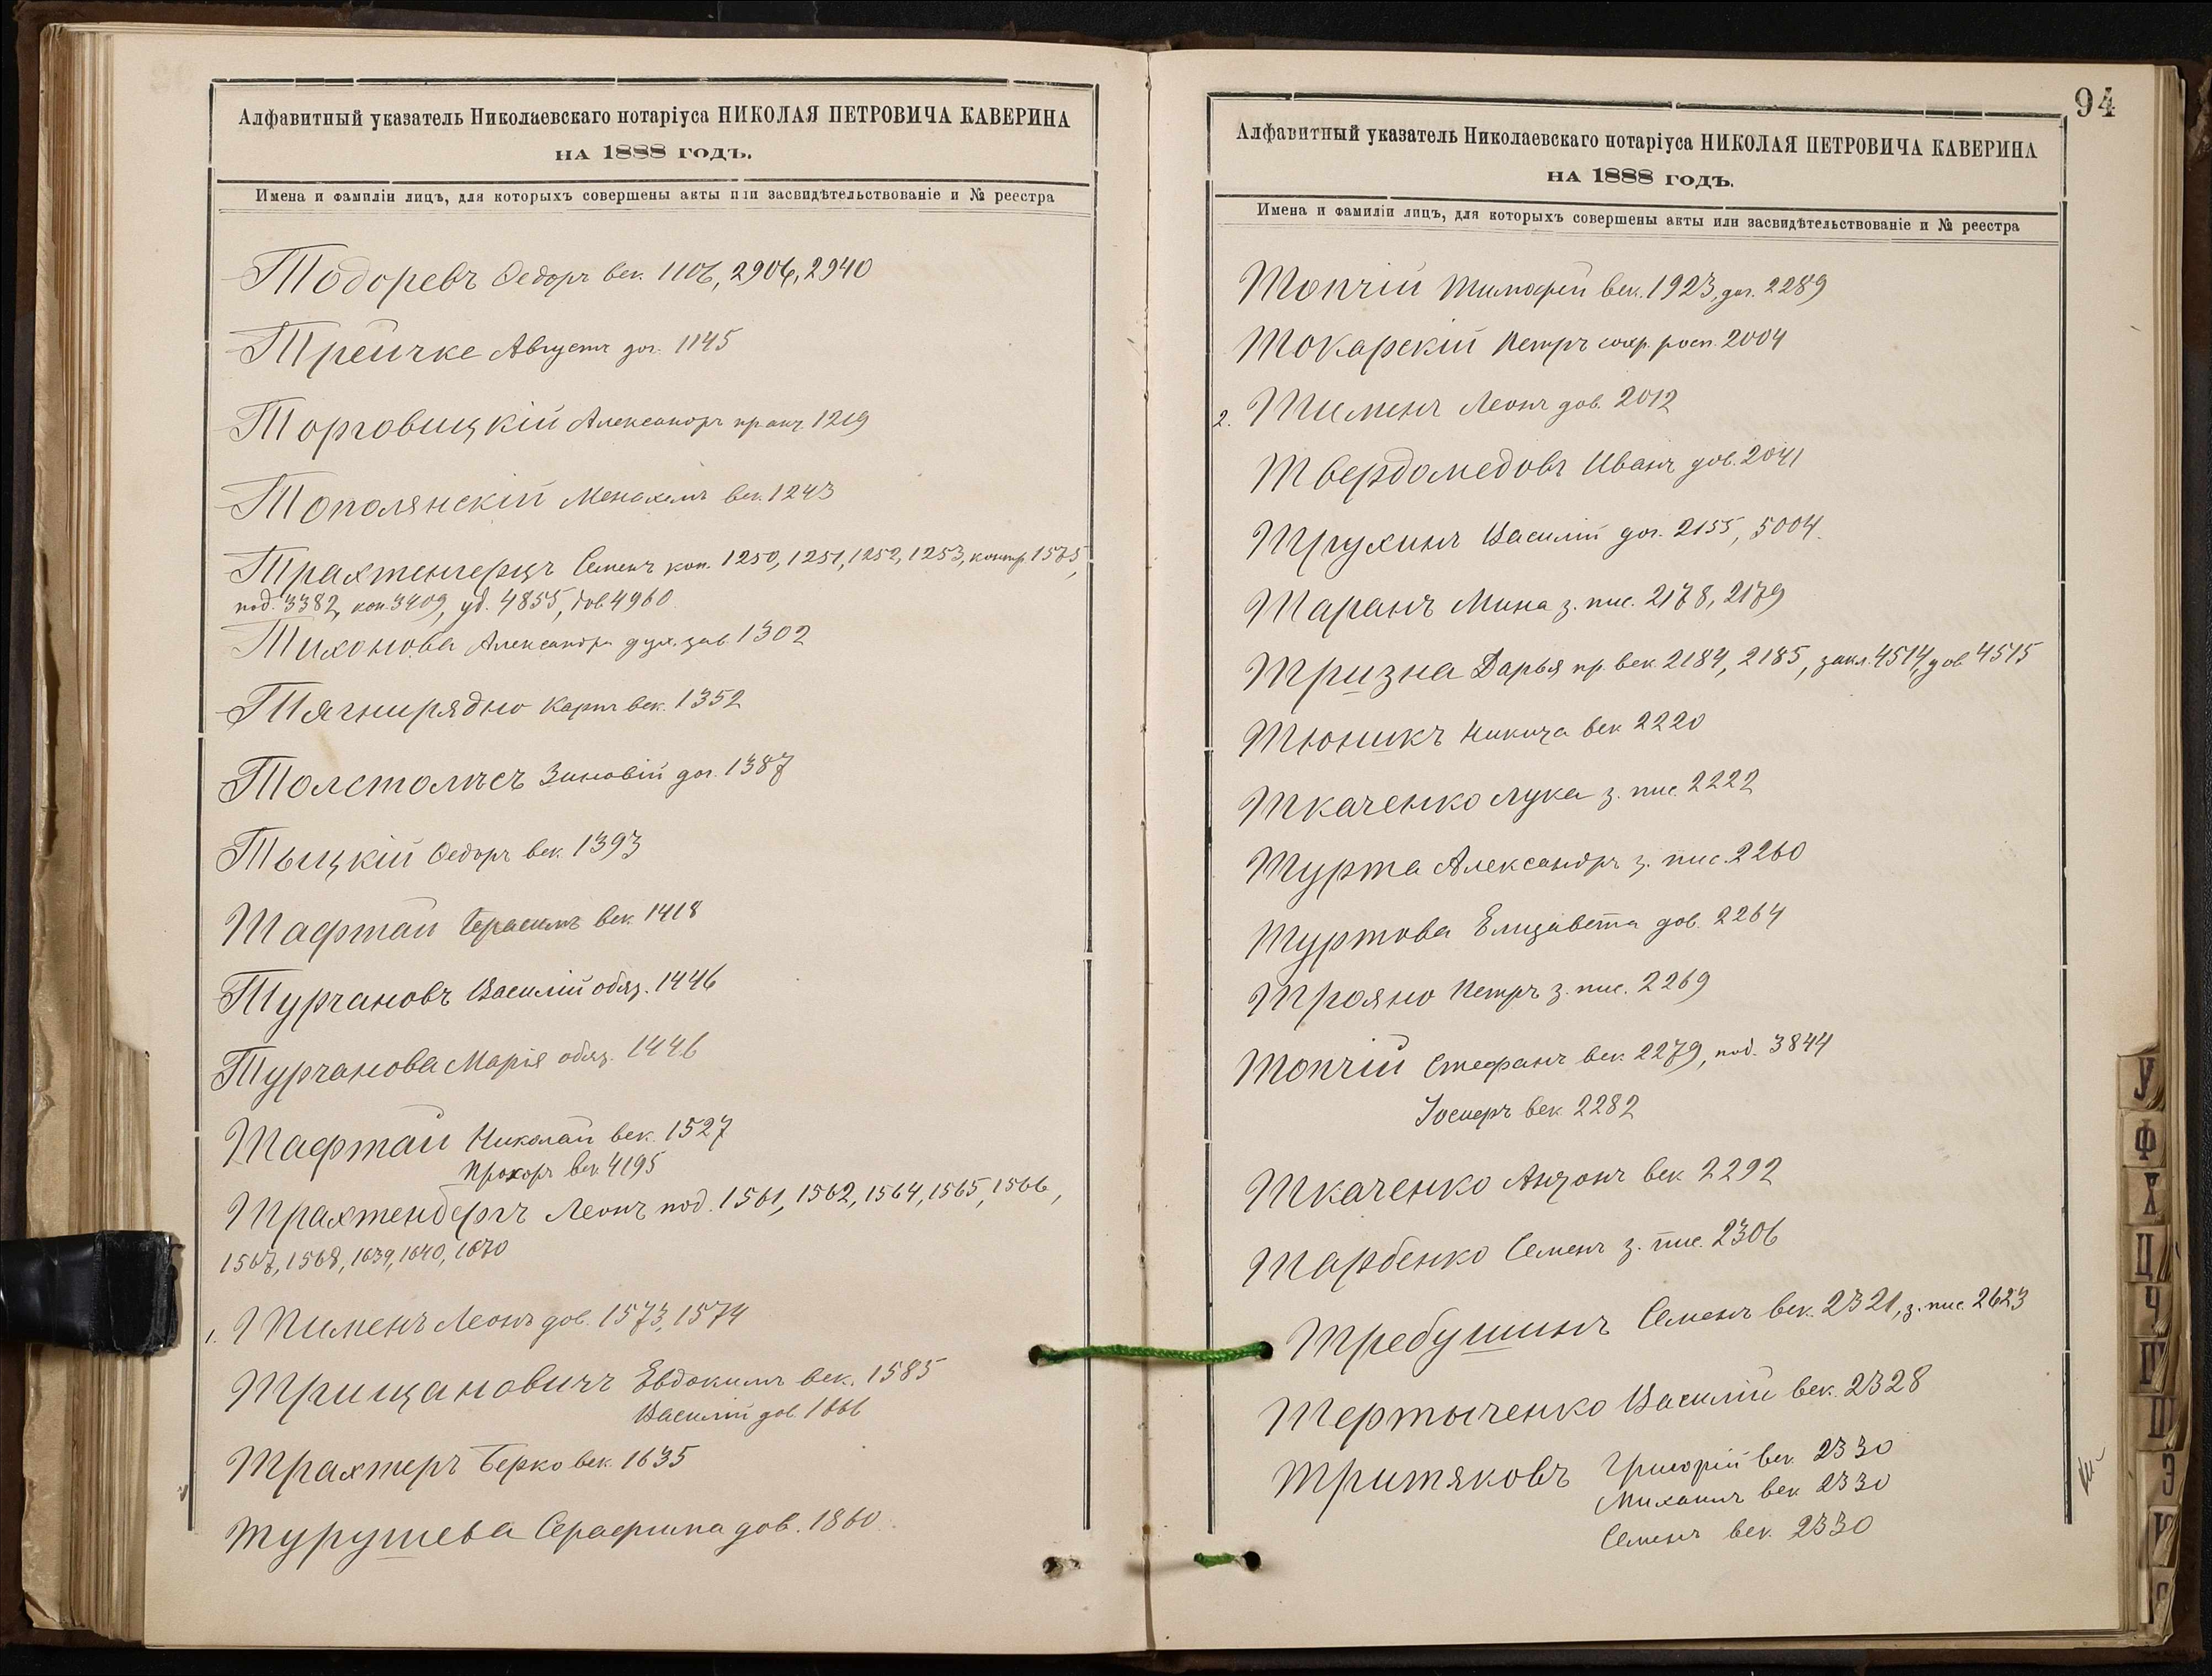 Алфавитный указатель Николаевскаго нотаріуса НИКОЛАЯ ПЕТРОВИЧА КАВЕРИНА
НА 1888 ГОДЪ.
Имена и фамиліи лицъ, для которыхъ совершены акты или засвидѣтельствованіе и № реестра
Тодоревъ Ѳедоръ век. 1106, 2906, 2940
Трейчке Августъ дог. 1145
Торговицкій Александръ 1219
Тополянскій Менахемъ век. 1243
Трахтенгерцъ Семенъ коп. 1250, 1251, 1252, 1253, контр. 1575,
под. 3382, коп. 3409, уд. 4855, дов. 4960
Тихонова Александра дух. зав. 1302
Тягнирядно Карпъ век. 1352
Толстолѣсъ Зиновій дог. 1387
Тыцкій Ѳедоръ век. 1393
Тафтай Герасимъ век. 1418
Турчановъ Василій обяз. 1446
Турчанова Марія обяз. 1446
Тафтай Николай век. 1527
Прохоръ век. 4195
Трахтенбергъ Леонъ под. 1561, 1562, 1564, 1565, 1566,
1567, 1568, 1639, 1640, 1670
1. Тименъ Леонъ дов. 1573, 1574
Трищановичъ Евдокимъ век. 1585
Василій дов. 1666
Трахтеръ Берко век. 1635
Турушева Серафима дов. 1860
94
Алфавитный указатель Николаевскаго нотаріуса НИКОЛАЯ ПЕТРОВИЧА КАВЕРИНА
НА 1888 ГОДЪ.
Имена и фамиліи лицъ, для которыхъ совершены акты или засвидѣтельствованіе и № реестра
Топчій Тимофей век. 1923, дог. 2289
Токарскій Петръ сохр. росп. 2004
2. Тименъ Леонъ дов. 2012
Твердомедовъ Иванъ дов. 2041
Трухинъ Василій дог. 2155, 5004
Таранъ Мина з. пис. 2178, 2179
Тризна Дарья пр. век. 2184, 2185, закл. 4514, дов. 4515
Тюникъ Никита век. 2220
Ткаченко Лука з. пис. 2222
Турта Александръ з. пис. 2260
Туртова Елизавета дов. 2264
Трояно Петръ з. пис. 2269
Топчій Стефанъ век. 2279, под. 3844
век. 2282
Ткаченко Антонъ век. 2292
Тарбенко Семенъ з. пис. 2306
Требушинъ Семенъ век. 2321, з. пис. 2623
Тертыченко Василій век. 2328
Тритяковъ Григорій век. 2330
Михаилъ век. 2330
Семенъ век. 2330
У
Ф
Х
Ц
Ч
Ш
Щ
Э